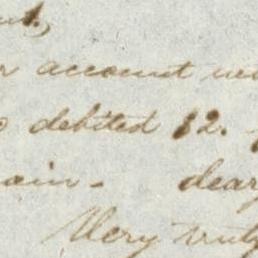 account
debited $2.
ain - dear
Very truly